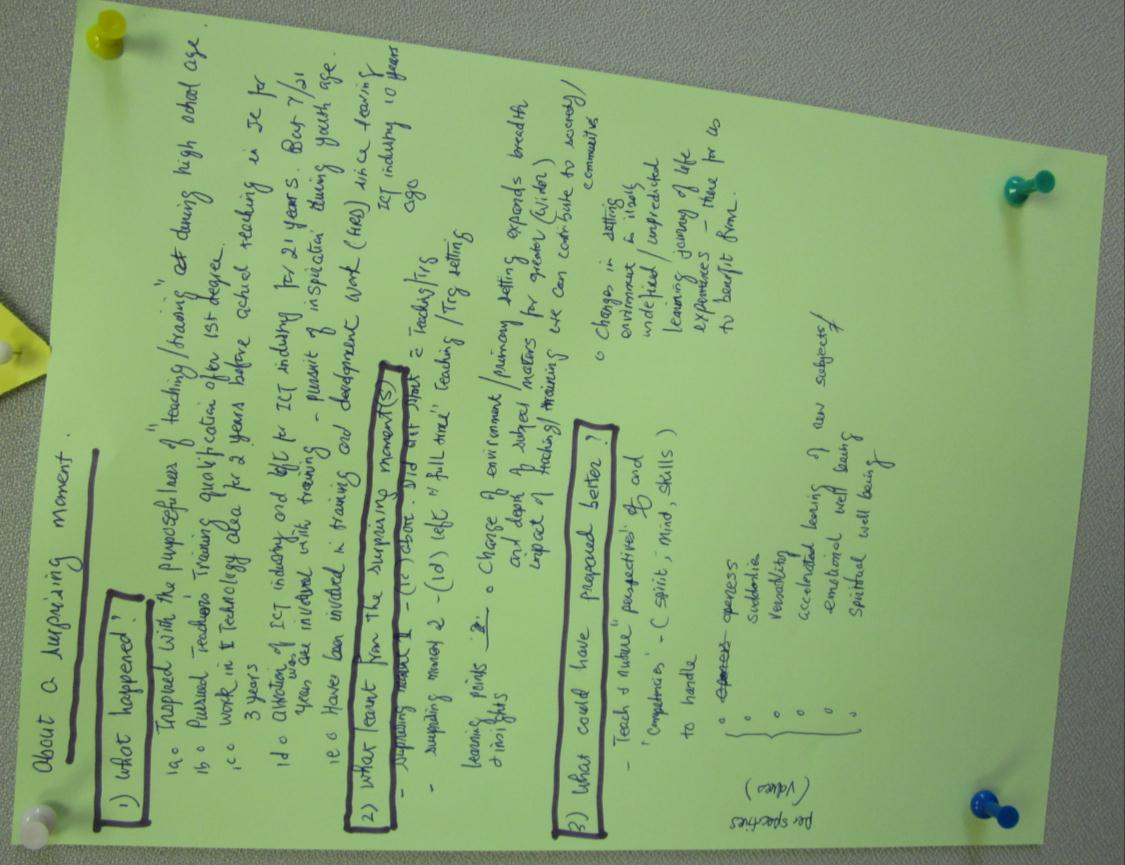 About a surprising moment.
1) What happened?
1a o Inspired with the purposefulness of "teaching/training" at during high school age.
1b o Pursued Teachers Training qualification after 1st degree.
1c o work in Technology area for 2 years before actual teaching in JC for
3 years
1d o Attraction of ICT industry and left for ICT industry for 21 years. But 7/21
years was involved with training - pursuit of inspiration during youth age.
1e o Have been involved in training and development work (HRD) since leaving
ICT industry 10 years
ago
2) What learnt from the surprising moment(s)
- surprising 1 - (1c) above. Did not start = Teachg/Trg
- surprising moment 2 - (1d) left "full time" Teaching/Trg setting
learning points
+ insights
o Change of environment/primary setting expands breadth
and depth of subject matters for greater (wider)
impact of teaching/training we can contribute to society/
communities
o Changes in setting
environment in itself
undefined/unpredicted
learning journey of life
experiences - there for us
to benefit from.
3) What could have prepared better?
- Teach & nuture "perspectives" of and
"competencies" - (spirit, mind, skills)
to handle
perspectives
(values)
o openess openess
o
o versatility
o accelerated learning of new subjects/
o emotional well being
o spiritual well being